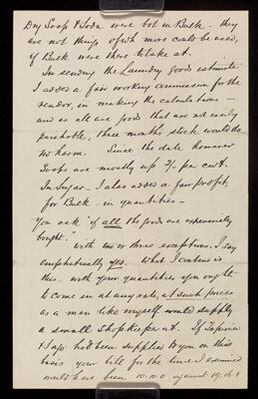 Dry Soap & Soda were bot in Bulk - they
are not things of wh more could be used,
if Bulk were there to take at.
In sending the Laundry goods estimate
I added a fair working commission for the
vendor, in making the calculations —
and as all are goods that are not easily
perishable, three months stock would do
no harm. Since the date however
Soaps are mostly up 2/- per cwt.
In Sugar - I also added a fair profit,
for Bulk in quantities —
You ask "if all the goods are extensively
bought."
with two or three exceptions, I say
emphatically yes. What I contend is
this - with your quantities you ought
to come in at any rate, at such prices
as a man like myself would supply
a small Shopkeeper at. If Tapioca
& Sago had been supplied to you on this
basis your bill for the time I examined
would have been 10.10.0 against 19.16.